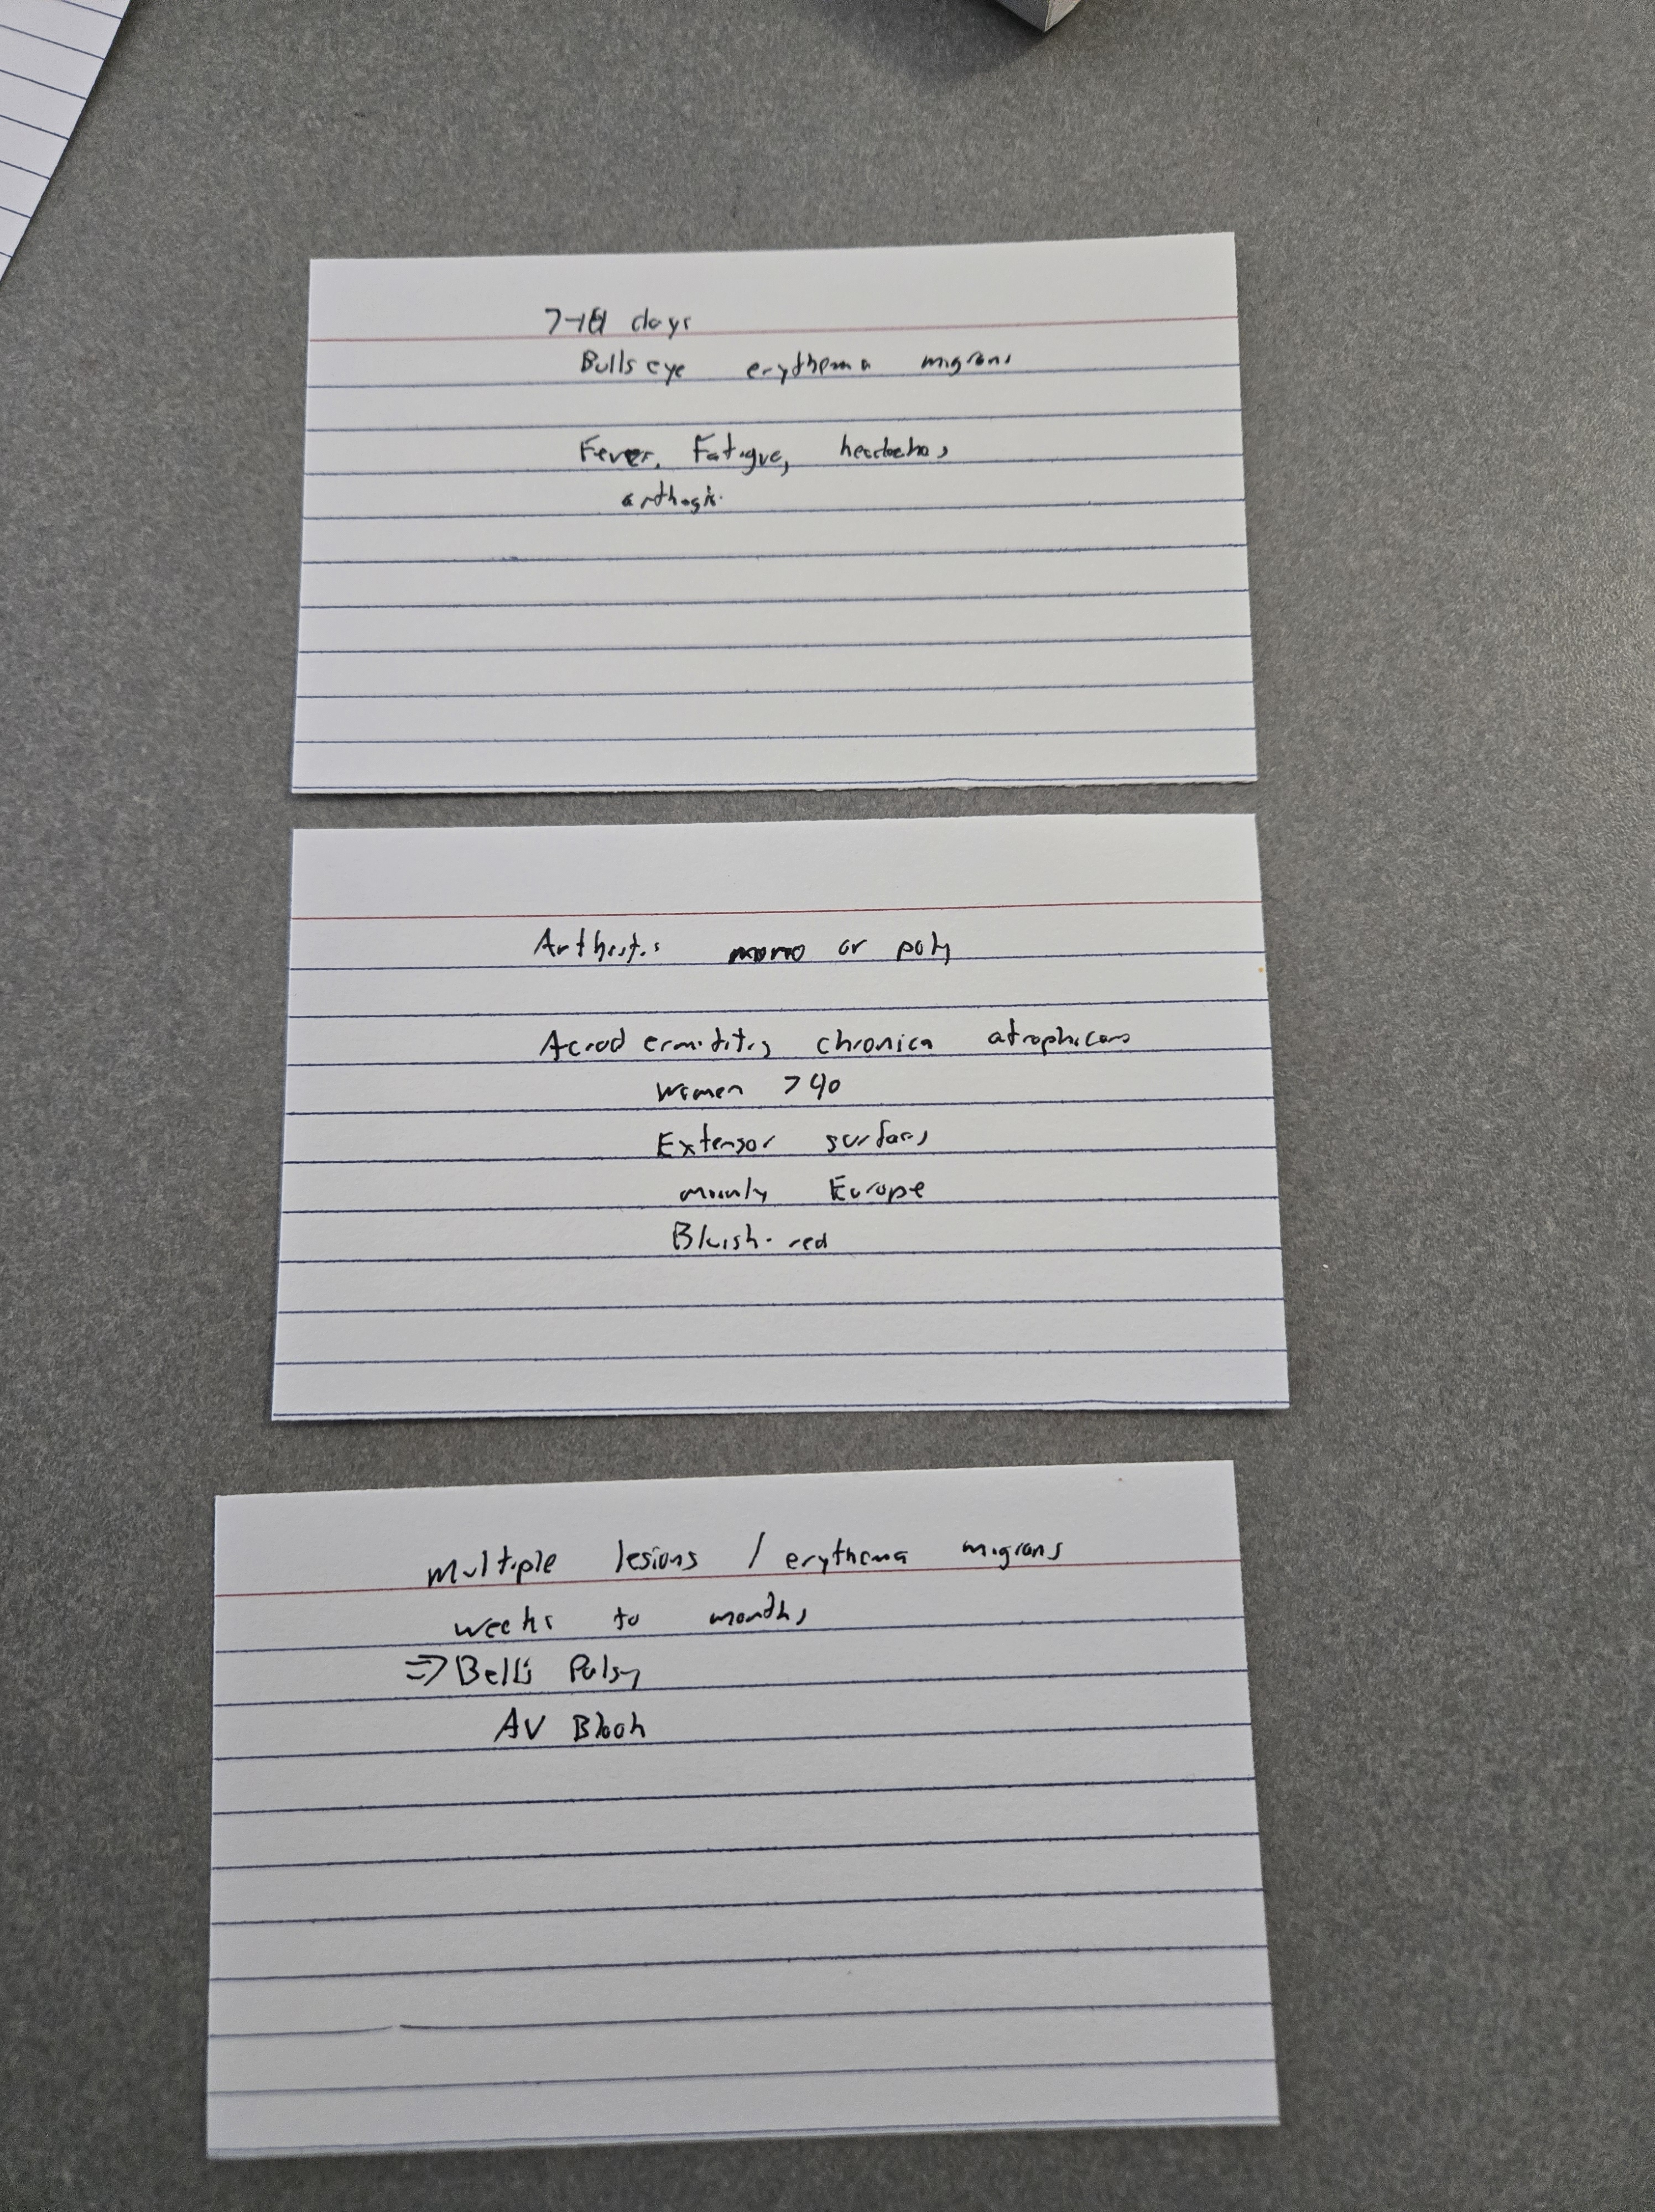 days
Bullseye erythema migrans
Fever, Fatigue, headaches,
Arthritis mono or poly
Acrodermatitis chronica atrophicans
Women >40
Extensor surfaces
mainly Europe
Bluish-red
Multiple lesions / erythema migrans
weeks to months
=> Bell's Palsy
AV Block